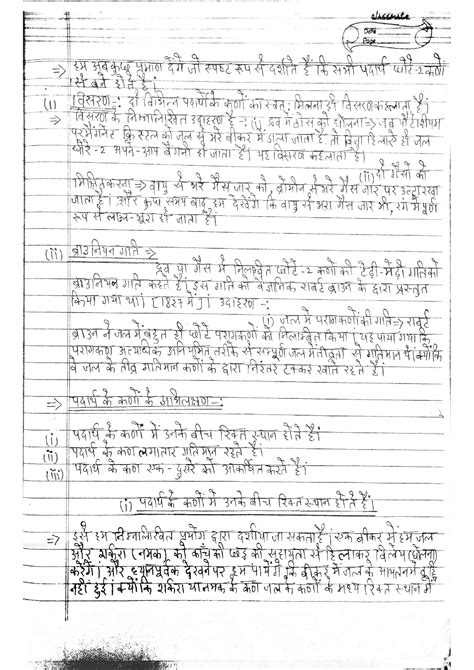 Date
Page
⇒ हम अब कुछ प्रमाण देंगे जो स्पष्ट रूप से दर्शाते हैं कि सभी पदार्थ छोटे-2 कणों
से बने होते हैं:
(i) विसरण:- दो विभिन्न पदार्थों के कणों का स्वत: मिलना ही विसरण कहलाता है।
⇒ विसरण के निम्नलिखित उदाहरण है -: (i) द्रव में ठोस का घोलना ⇒ जब पोटाशियम
परमैंगनेट क्रिस्टल को जल से भरे बीकर में डाला जाता है तो बिना हिलाये ही जल
धीरे-2 अपने-आप बैंगनी हो जाता है। यह विसरण कहलाता है।
(ii) दो गैसों को
मिश्रित करना ⇒ वायु से भरे गैस जार को, ब्रोमीन से भरे गैस जार पर उल्टा रखा
जाता है। और कुछ समय बाद, हम देखेंगे कि वायु से भरा गैस जार भी, रंग में पूर्ण
रूप से लाल-भूरा हो जाता है।
(ii) ब्राउनियन गति ⇒
द्रव या गैस में निलम्बित छोटे-2 कणों की टेढ़ी-मेढ़ी गति को
ब्राउनियन गति कहते हैं। इस गति को वैज्ञानिक राबर्ट ब्राउन के द्वारा प्रस्तुत
किया गया था। [1827 में]। उदाहरण -:
(i) जल में परागकणों की गति ⇒ राबर्ट
ब्राउन ने जल में बहुत ही छोटे परागकणों को निलम्बित किया। यह पाया गया कि
परागकण अत्यधिक अनियमित तरीके से सम्पूर्ण जल में तीव्रता से गतिमान थे। क्योंकि
वे जल के तीव्र गतिमान कणों के द्वारा निरंतर टक्कर खाते रहते हैं।
⇒ पदार्थ के कणों के अभिलक्षण -:
(i) पदार्थ के कणों में उनके बीच रिक्त स्थान होते हैं।
(ii) पदार्थ के कण लगातार गतिमान रहते हैं।
(iii) पदार्थ के कण एक-दुसरे को आकर्षित करते हैं।
(i) पदार्थ के कणों में उनके बीच रिक्त स्थान होते हैं।
⇒ इसे हम निम्नलिखित प्रयोग द्वारा दर्शाया जा सकता है। एक बीकर में हम जल
और शर्करा (नमक) को काँच की छड़ की सहायता से हिलाकर विलेय (घोलना)
करेंगे। और ध्यानपूर्वक देखने पर हम पायेंगे कि बीकर में जल के आयतन में वृद्धि
नहीं हुई। क्योंकि शर्करा या नमक के कण जल के कणों के मध्य रिक्त स्थान में